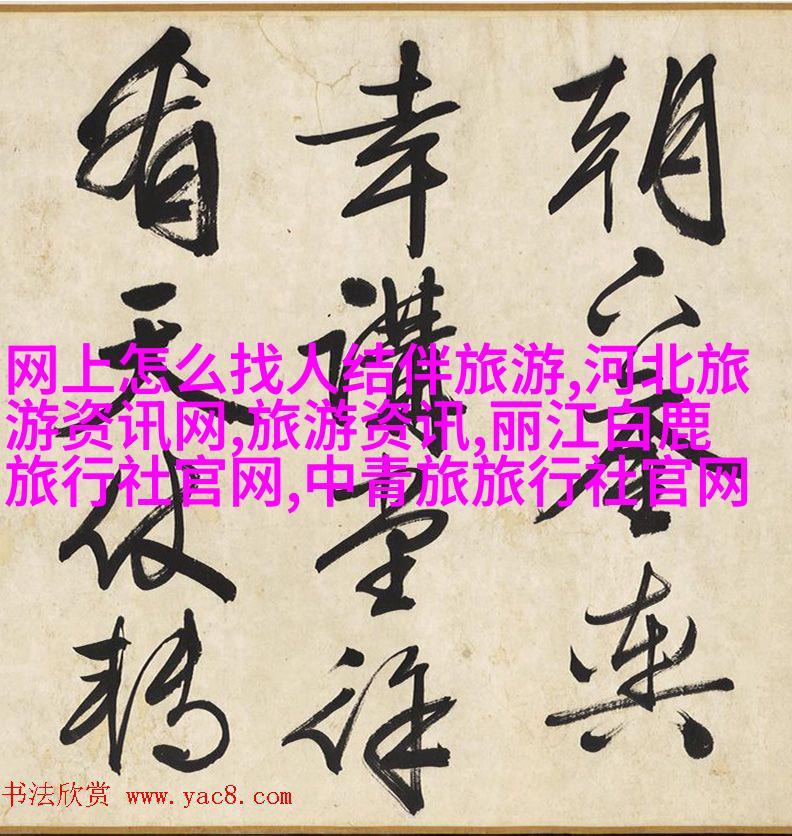 朝輿
幸講堂徐
看天仗轉
网上怎么找人结伴旅游,河北旅
游资讯网,旅游资讯,丽江白鹿
旅行社官网,中青旅旅行社官网
书法欣赏 www.yac8.com